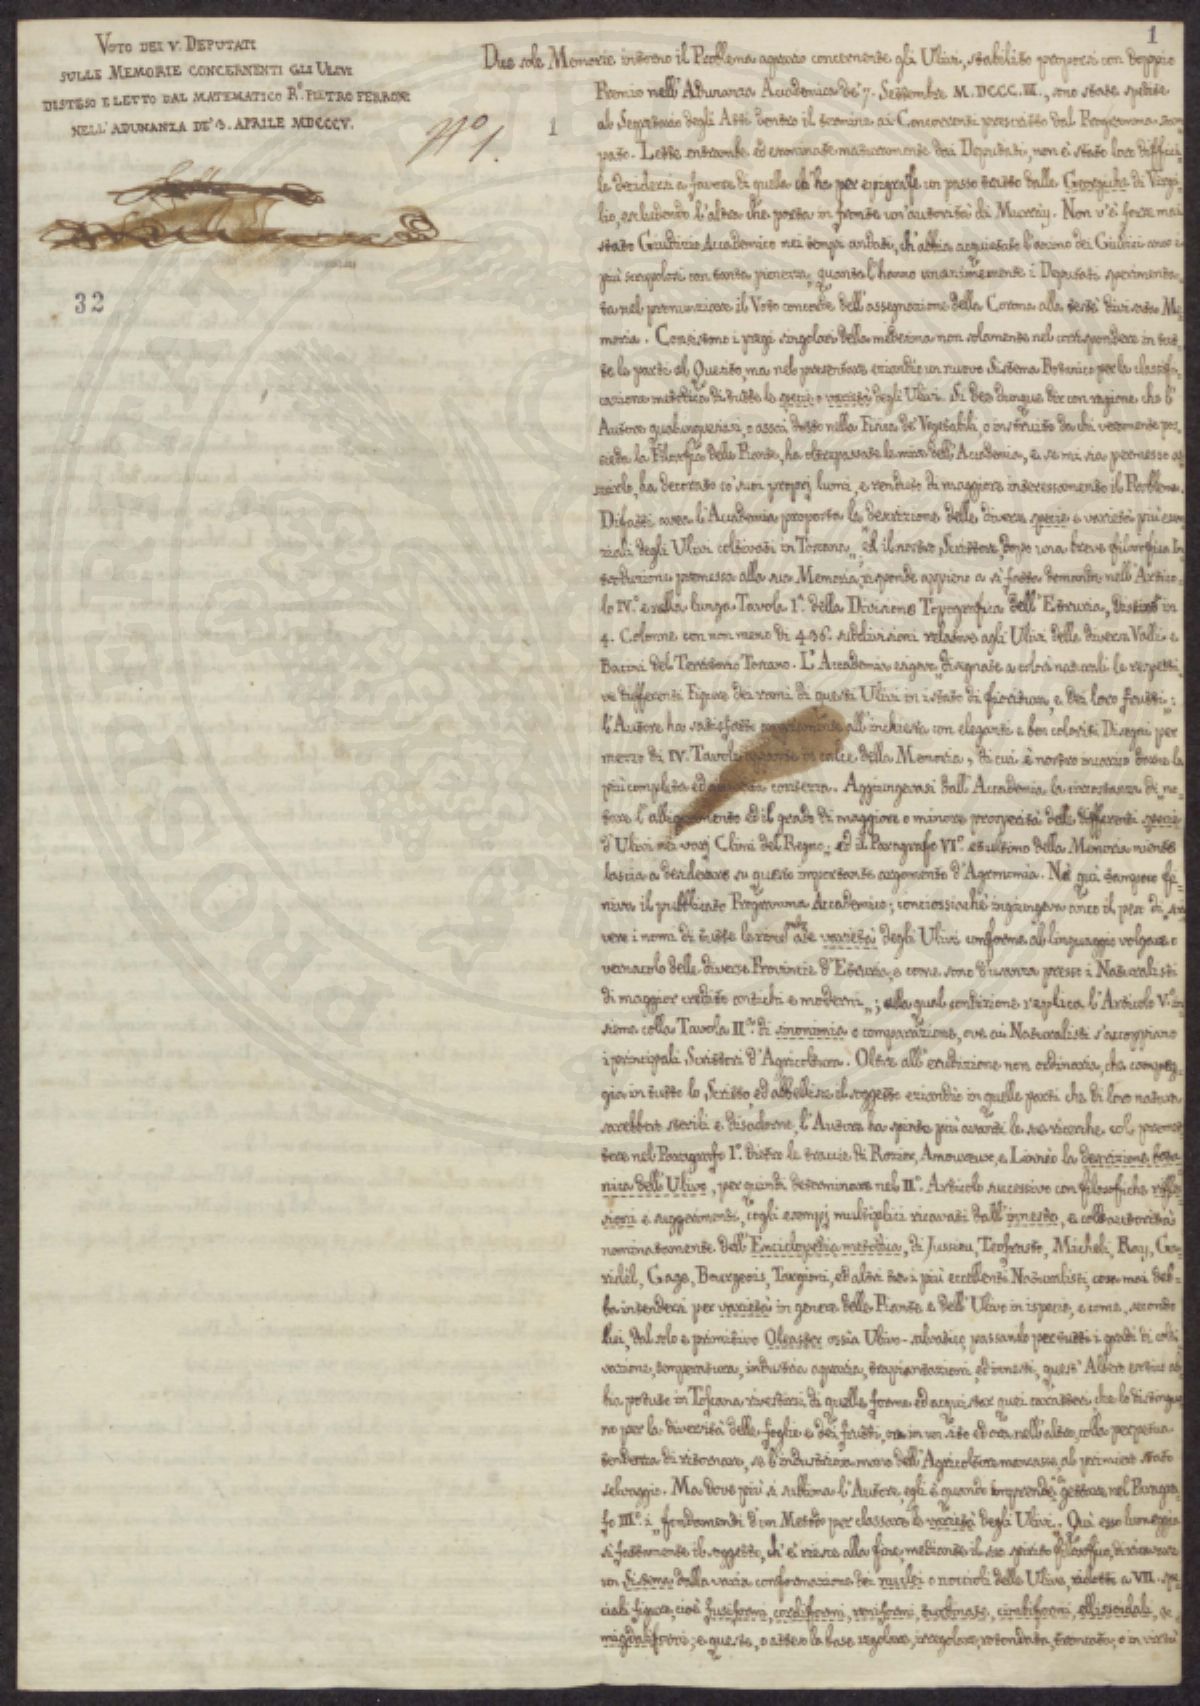 1
VOTO DEI V. DEPUTATI
SULLE MEMORIE CONCERNENTI GLI ULIVI
DISTESO E LETTO DAL MATEMATICO R.º PIETRO FERRONI
NELL'ADUNANZA DE' 3. APRILE MDCCCV.
Nº 1.
1
32
Due sole Memorie intorno il Problema agrario concernente gli Ulivi, stabilito proporsi con doppio
Premio nell'Adunanza Accademica de' 7. Settembre M.DCCC.III., sono state spedite
al Segretario degli Atti dentro il termine ai Concorrenti prescritto dal Programma stam
pato. Lette entrambe ed esaminate maturamente dai Deputati, non è stato loro diffici
le decidersi a favore di quella ch'ha per epigrafe un passo tratto dalle Georgiche di Virgi
lio, escludendo l'altra che porta in fronte un'autorità di
Non v'è forse mai
stato Giudizio Accademico nei tempi andati, ch'abbia acquietato l'animo dei Giudici
più scrupolosi con tanta pienezza, quanta l'hanno unanimemente i Deputati sperimenta
ta nel pronunziare il Voto concorde dell'assegnazione della Corona alla testè divisata Me
moria. Consistono i pregi singolari della medesima non solamente nel corrispondere in tut
te le parti al Quesito, ma nel presentare eziandio un nuovo Sistema Botanico per la classifi
cazione metodica di tutte le specie o varietà degli Ulivi. Si dee dunque dir con ragione che l'
Autore qualunque siasi, o assai dotto nella Fisica de' Vegetabili, o instruito da chi veramente pos
sieda la Filosofia delle Piante, ha oltrepassate le mire dell'Accademia, e se mi sia permesso
ha decorato co' suoi proprj lumi, e renduto di maggiore interessamento il Problema.
Difatti avea l'Accademia proposta la descrizione delle diverse specie e varietà più essen
ziali degli Ulivi coltivati in Toscana„ Ed il nostro Scrittore, dopo una breve filosofica In
troduzione premessa alla sua Memoria, risponde appieno a sì fatta domanda nell'Artico
lo IV.º e nella lunga Tavola 1.ª della Divisione Topografica dell'Etruria, distinta in
4. Colonne con non meno di 436. suddivisioni relative agli Ulivi delle diverse Valli e
Bacini del Territorio Toscano. L'Accademia esigeva „disegnate a colori naturali le respetti
ve differenti Figure dei rami di questi Ulivi in istato di fioritura, e dei loro frutti„:
l'Autore ha satisfatto all'inchiesta con eleganti e ben coloriti Disegni per
mezzo di IV. Tavole in calce della Memoria, di cui è nostro incarico darne la
più completa ed contezza. Aggiungevasi dall'Accademia la circostanza di „no
tare l' ed il grado di maggiore o minore prosperità delle differenti specie
d'Ulivi nei varj Climi del Regno„: ed il Paragrafo VI.º ed ultimo della Memoria niente
lascia a desiderare su questo importante argomento d'Agronomia. Nè quì tampoco fi
niva il pubblicato Programma Accademico; conciossiachè ingiungeva anco il peso di „scri
vere i nomi di tutte le rimarcate varietà degli Ulivi conforme al linguaggio volgare o
vernacolo delle diverse Provincie d'Etruria, e come sono d'usanza presso i Naturalisti
di maggior credito antichi e moderni„; alla qual condizione replica l'Articolo V.º in
sieme colla Tavola II.ª di sinonimia o comparazione, ove ai Naturalisti s'accoppiano
i principali Scrittori d'Agricoltura. Oltre all'erudizione non ordinaria, che campeg
gia in tutto lo Scritto, ed abbellisce il soggetto eziandio in quelle parti che di loro natura
sarebbero sterili e disadorne, l'Autore ha spinte più avanti le sue ricerche col premet
tere nel Paragrafo 1.º dietro le traccie di Rozier, Amoureux, e Linnèo la descrizione bota
nica dell'Ulivo, per quindi determinare nel II.º Articolo successivo con filosofiche rifles
sioni e suggerimenti, cogli esempj multiplici ricavati dall'innesto, e coll'autorità
nominatamente dell'Enciclopedia metodica, di Jussieu, Teofrasto, Micheli, Ray, Ga
ridèl, Bourgeois, Targioni, ed altri tra i più eccellenti Naturalisti, cosa mai deb
ba intendersi per varietà in genere delle Piante e dell'Ulivo in ispecie, e come, secondo
lui, dal solo e primitivo Oleaster ossia Ulivo-salvatico, passando per tutti i gradi di colti
vazione, temperatura, industria agraria, trapiantazioni, ed innesti, quest'Albero
bia potuto in Toscana rivestirsi di quelle forme ed acquistar quei caratteri, che lo distinguo
no per la diversità delle foglie e dei frutti, ora in un sito ed ora nell'altro, colla perpetua
tendenza di ritornare, se l'industriosa mano dell'Agricoltore mancasse, al primiero stato
selvaggio. Ma dove più si sublima l'Autore, egli è quando imprende a gettare nel Paragra
fo III.º i „fondamenti d'un Metodo per classare le varietà degli Ulivi„. Quì esso lumeggia
sì fattamente il soggetto, ch'ei riesce alla fine, mediante il suo spirito filosofico, di ricavare
un Sistema dalla varia conformazione dei nuclei o noccioli delle Ulive, ridotti a VII. spe
ciali figure, cioè fusiformi, cordiformi, reniformi, turbinate, ellissoidali,
e queste, o attesa la base regolare, irregolare, rotondata, troncata, o in virtù